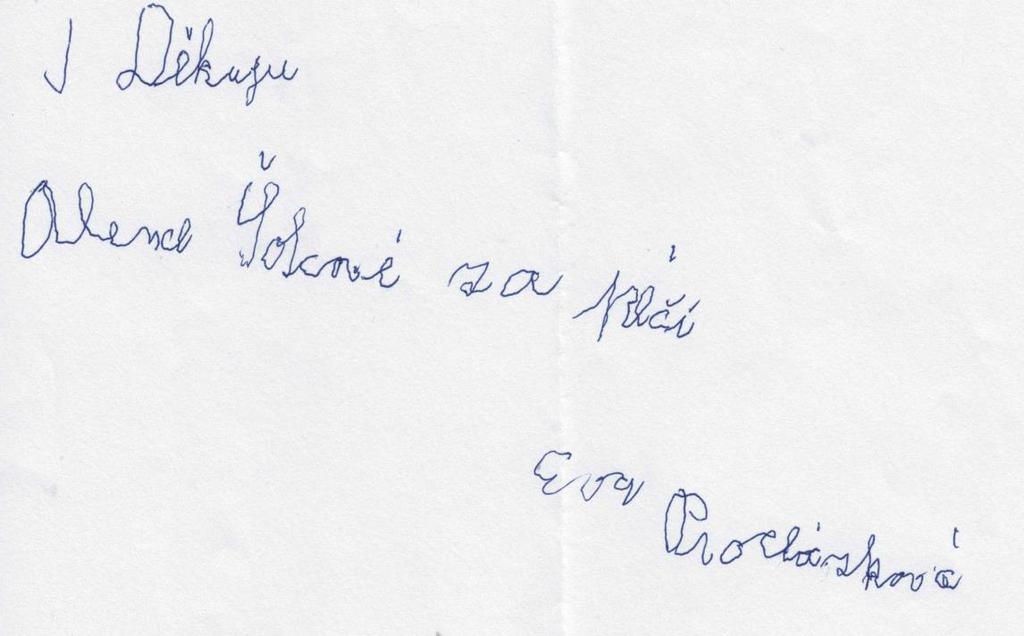 J Děkuju
Aleně Šokové za péči
Eva Procházková